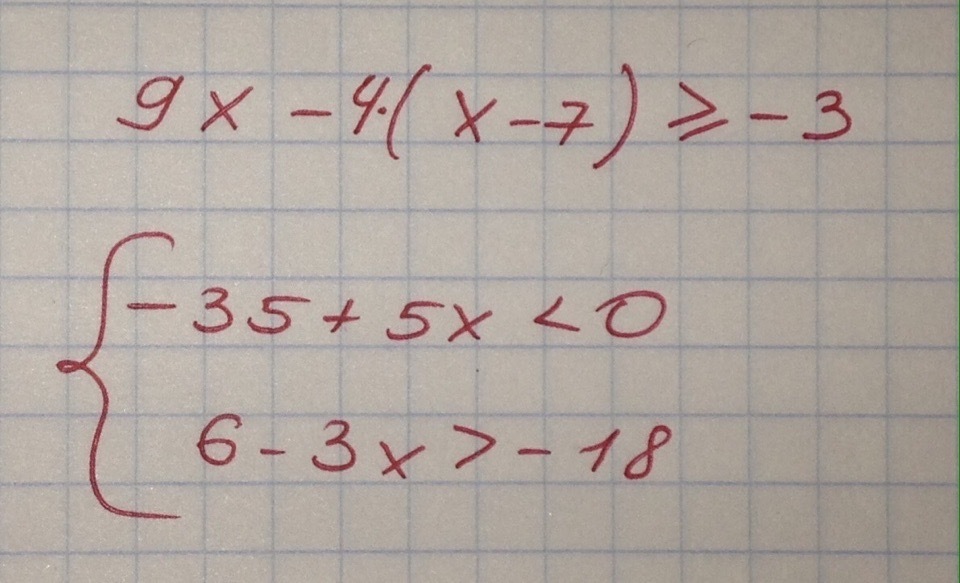 9x - 4·(x - 7) ⩾ - 3
- 35 + 5x < 0
6 - 3x > - 18